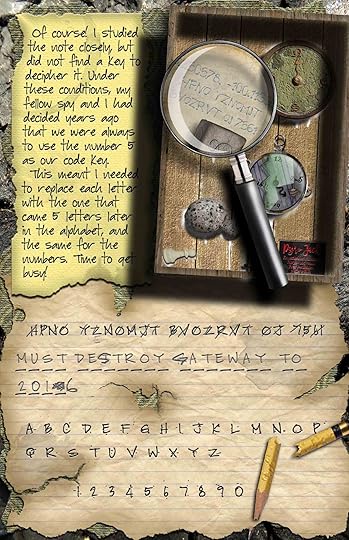 Of course! I studied
the note closely, but
did not find a key to
decipher it. Under
these conditions, my
fellow spy and I had
decided years ago
that we were always
to use the number 5
as our code key.
This meant I needed
to replace each letter
with the one that
came 5 letters later
in the alphabet, and
the same for the
numbers. Time to get
busy!
HPNO YZNOMJT
BVOZRVT OJ 7561
HPNO YZNOMJT BVOZRVT OJ 7561
MUST DESTROY GATEWAY TO
2016
A B C D E F G H I J K L M N O P
Q R S T U V W X Y Z
1 2 3 4 5 6 7 8 9 0